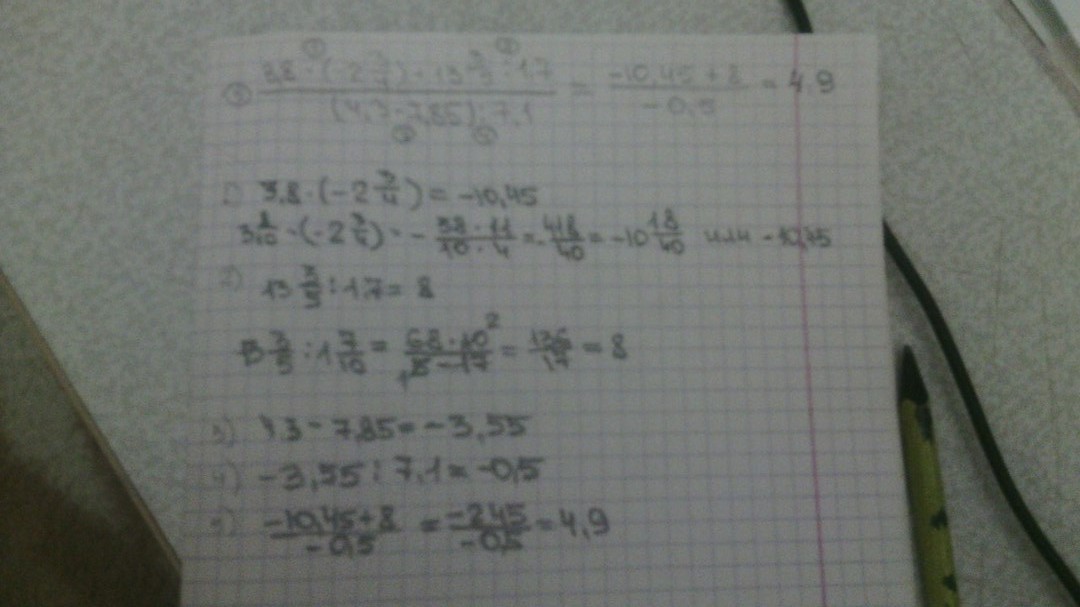 ① ②
3,8 · (-2 3/4) + 13 3/5 : 1,7 / (4,3 - 7,85) : 7,1 = -10,45 + 8 / -0,5 = 4,9
③ ④
1) 3,8 · (-2 3/4) = -10,45
3 8/10 · (-2 3/4) = - 38 · 11 / 10 · 4 = - 418/40 = -10 18/40 или -10,45
2) 13 3/5 : 1,7 = 8
13 3/5 : 1 7/10 = 68 · 10 2 / 1 5 · 17 = 136/17 = 8
3) 4,3 - 7,85 = -3,55
4) -3,55 : 7,1 = -0,5
5) -10,45 + 8 / -0,5 = -2,45 / -0,5 = 4,9